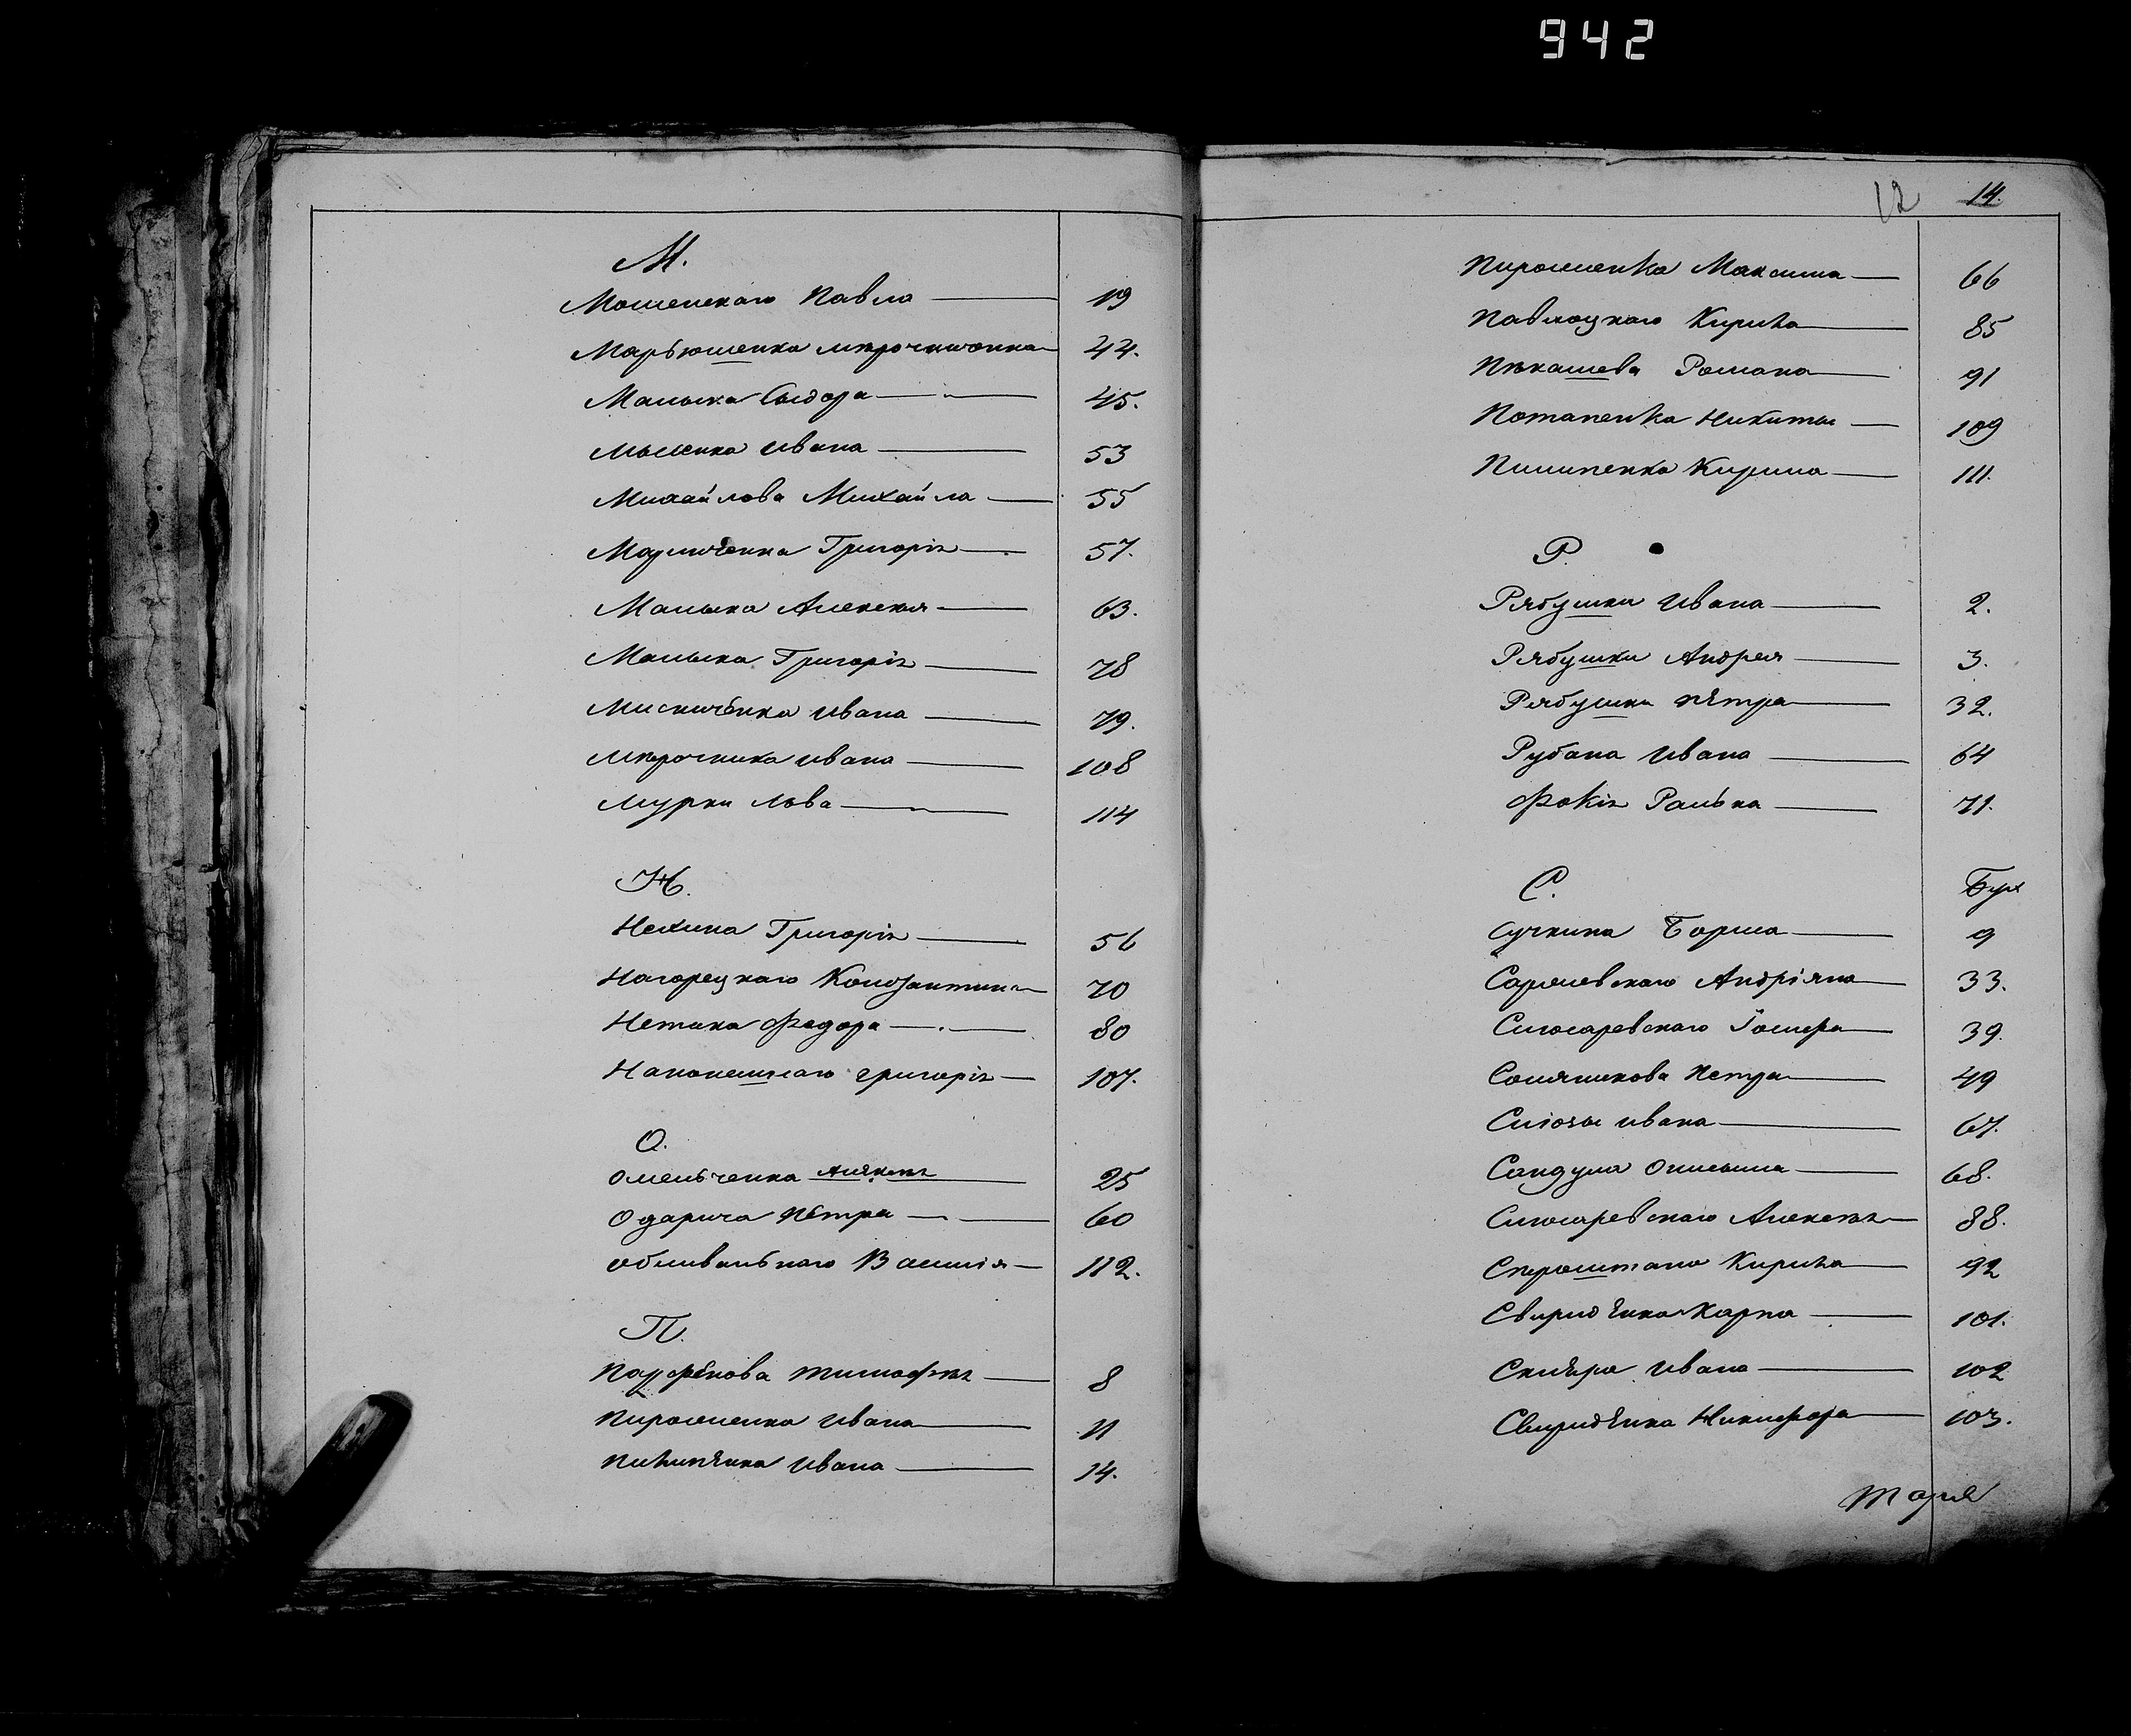 942
М.
Мошенскаго Павла 19
Марьюшенка 44.
Малыка Сыдора 45.
Мыценка Ивана 53
Михайлова Михайла 55
Марниченка Григорія 57.
Малыка Алексѣя 63.
Малыка Григорія 78
Мисниченка Ивана 79.
Мирочника Ивана 108
Мурки Льва 114
Н.
Нехина Григорія 56
Нагорецкаго Константина 70
Нетика Федора 80
Наконешнаго Григорія 107.
О.
Омельченка Алексѣя 25
Одарича Петра 60
Обливальнаго Василія 112.
П.
Парфенова Тимофѣя 8
Пирошенка Ивана 11
Пилипенка Ивана 14.
12 14.
Пирошенка Максима 66
Павлоцкаго Кирила 85
Пѣкашева Романа 91
Потапенка Никиты 109
Пилипенка Кирила 111.
Р.
Рябушки Ивана 2.
Рябушки Андрея 3.
Рябушки Петра 32.
Рубана Ивана 64
Фокія Ралька 71.
С.
Сучкина Бориса 9
Саражевскаго Андріяна 33.
Слюсаревскаго Іосифа 39.
Соляникова Петра 49
Слюзы Ивана 67.
Сандула Онисима 68.
Слюсаревскаго Алексѣя 88.
Кирила 92
Свириденка Карпа 101.
Скляра Ивана 102
Свириденка Никифора 103.